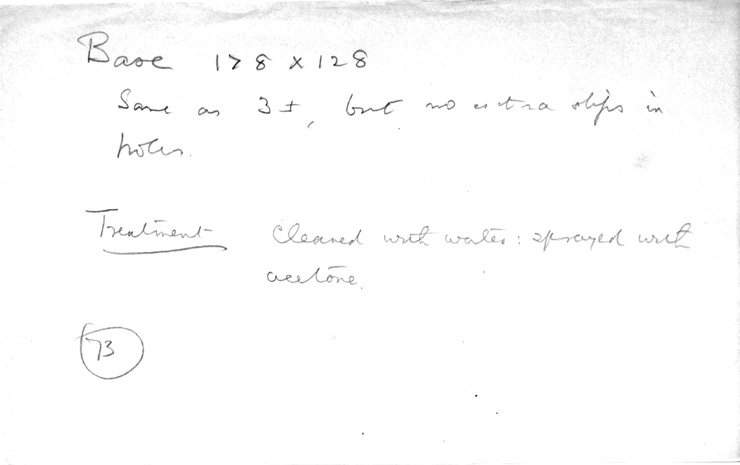 Base 128 x 128
Same as 3 ±, but no extra slips in
holes.
Treatment Cleaned with water: sprayed with
acetone.
73